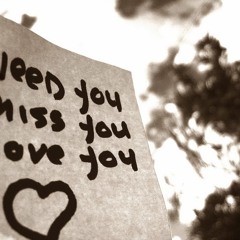 Need you
miss you
ove you